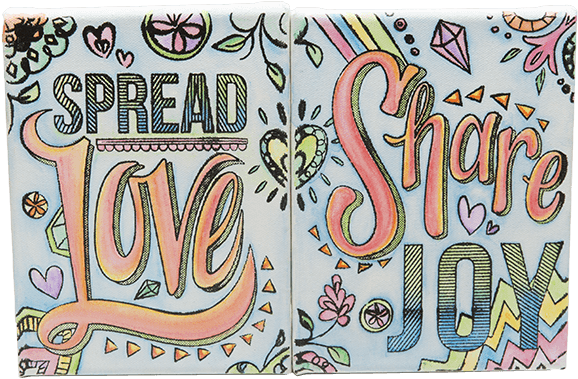 SPREAD
Love
Share
JOY